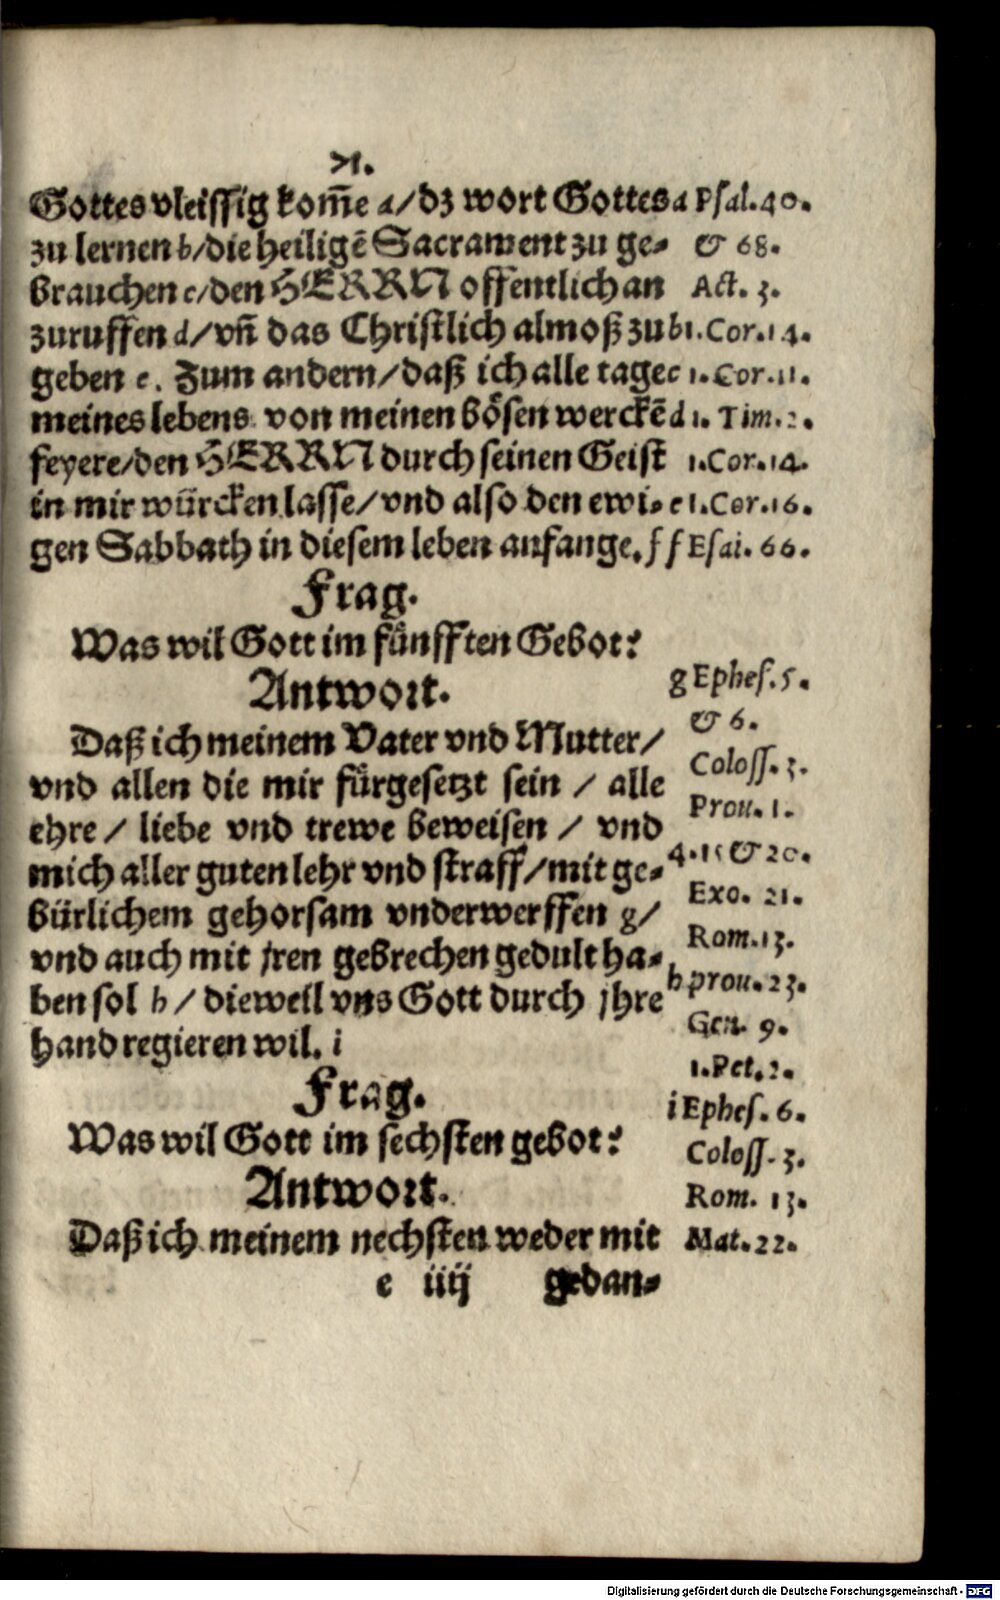 71.
Gottes vleissig kom̄e a/dz wort Gottes a Psal.40.
zu lernen b/die heiligẽ Sacrament zu ge- & 68.
brauchen c/den HERRN offentlich an Act. 3.
zuruffen d/vn̄ das Christlich almoß zu b 1.Cor.14.
geben e. Zum andern/daß ich alle tage c 1.Cor.11.
meines lebens von meinen bösen werckẽ d 1. Tim.2.
feyere/den HERRN durch seinen Geist 1.Cor.14.
in mir würcken lasse/vnd also den ewi- e 1.Cor.16.
gen Sabbath in diesem leben anfange. f f Esai. 66.
Frag.
Was wil Gott im fünfften Gebot?
Antwort.
Daß ich meinem Vater vnd Mutter/
vnd allen die mir fürgesetzt sein / alle
ehre / liebe vnd trewe beweisen / vnd
mich aller guten lehr vnd straff/mit ge-
bürlichem gehorsam vnderwerffen g/
vnd auch mit jren gebrechen gedult ha-
ben sol h / dieweil vns Gott durch jhre
hand regieren wil. i
g Ephes.5.
& 6.
Coloss.3.
Prou. 1.
4.15 & 20.
Exo. 21.
Rom.13.
h prou.23.
Gen. 9.
1.Pet.2.
i Ephes. 6.
Coloss. 3.
Rom. 13.
Mat.22.
Frag.
Was wil Gott im sechsten gebot?
Antwort.
Daß ich meinem nechsten weder mit
e iiij gedan-
Digitalisierung gefördert durch die Deutsche Forschungsgemeinschaft - DFG